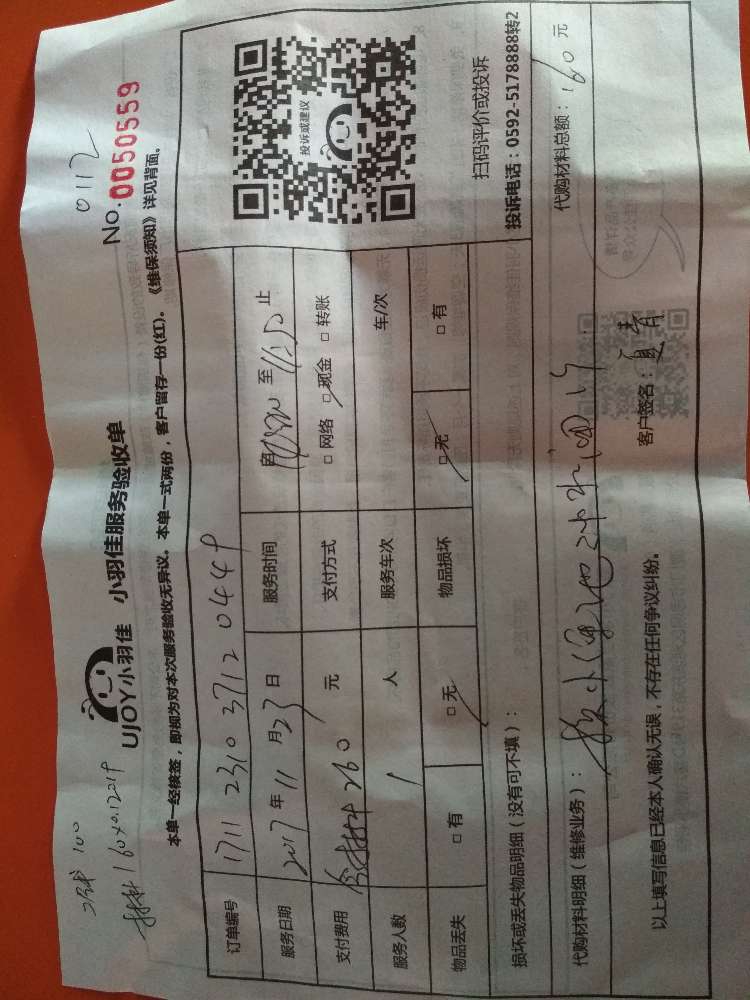 工钱 100
材料 160×0.12=19
0112
UJOY小羽佳 小羽佳服务验收单
No. 0050559
本单一经核签，即视为对本次服务验收无异议。本单一式两份，客户留存一份(红)。《维保须知》详见背面。
订单编号 1711 2310 3712 0449
投诉或建议
服务日期 2017 年 11 月 23 日 服务时间 至 11:50 止
支付费用 含材料 260 元 支付方式 □ 网络 □ 现金 □ 转账
服务人数 1 人 服务车次 车/次
扫码评价或投诉
物品丢失 □ 有 □ 无 物品损坏 □ 无 □ 有
投诉电话：0592-5178888转2
损坏或丢失物品明细（没有可不填）：
代购材料明细（维修业务）： 代购材料总额：160 元
以上填写信息已经本人确认无误，不存在任何争议纠纷。 客户签名：夏青